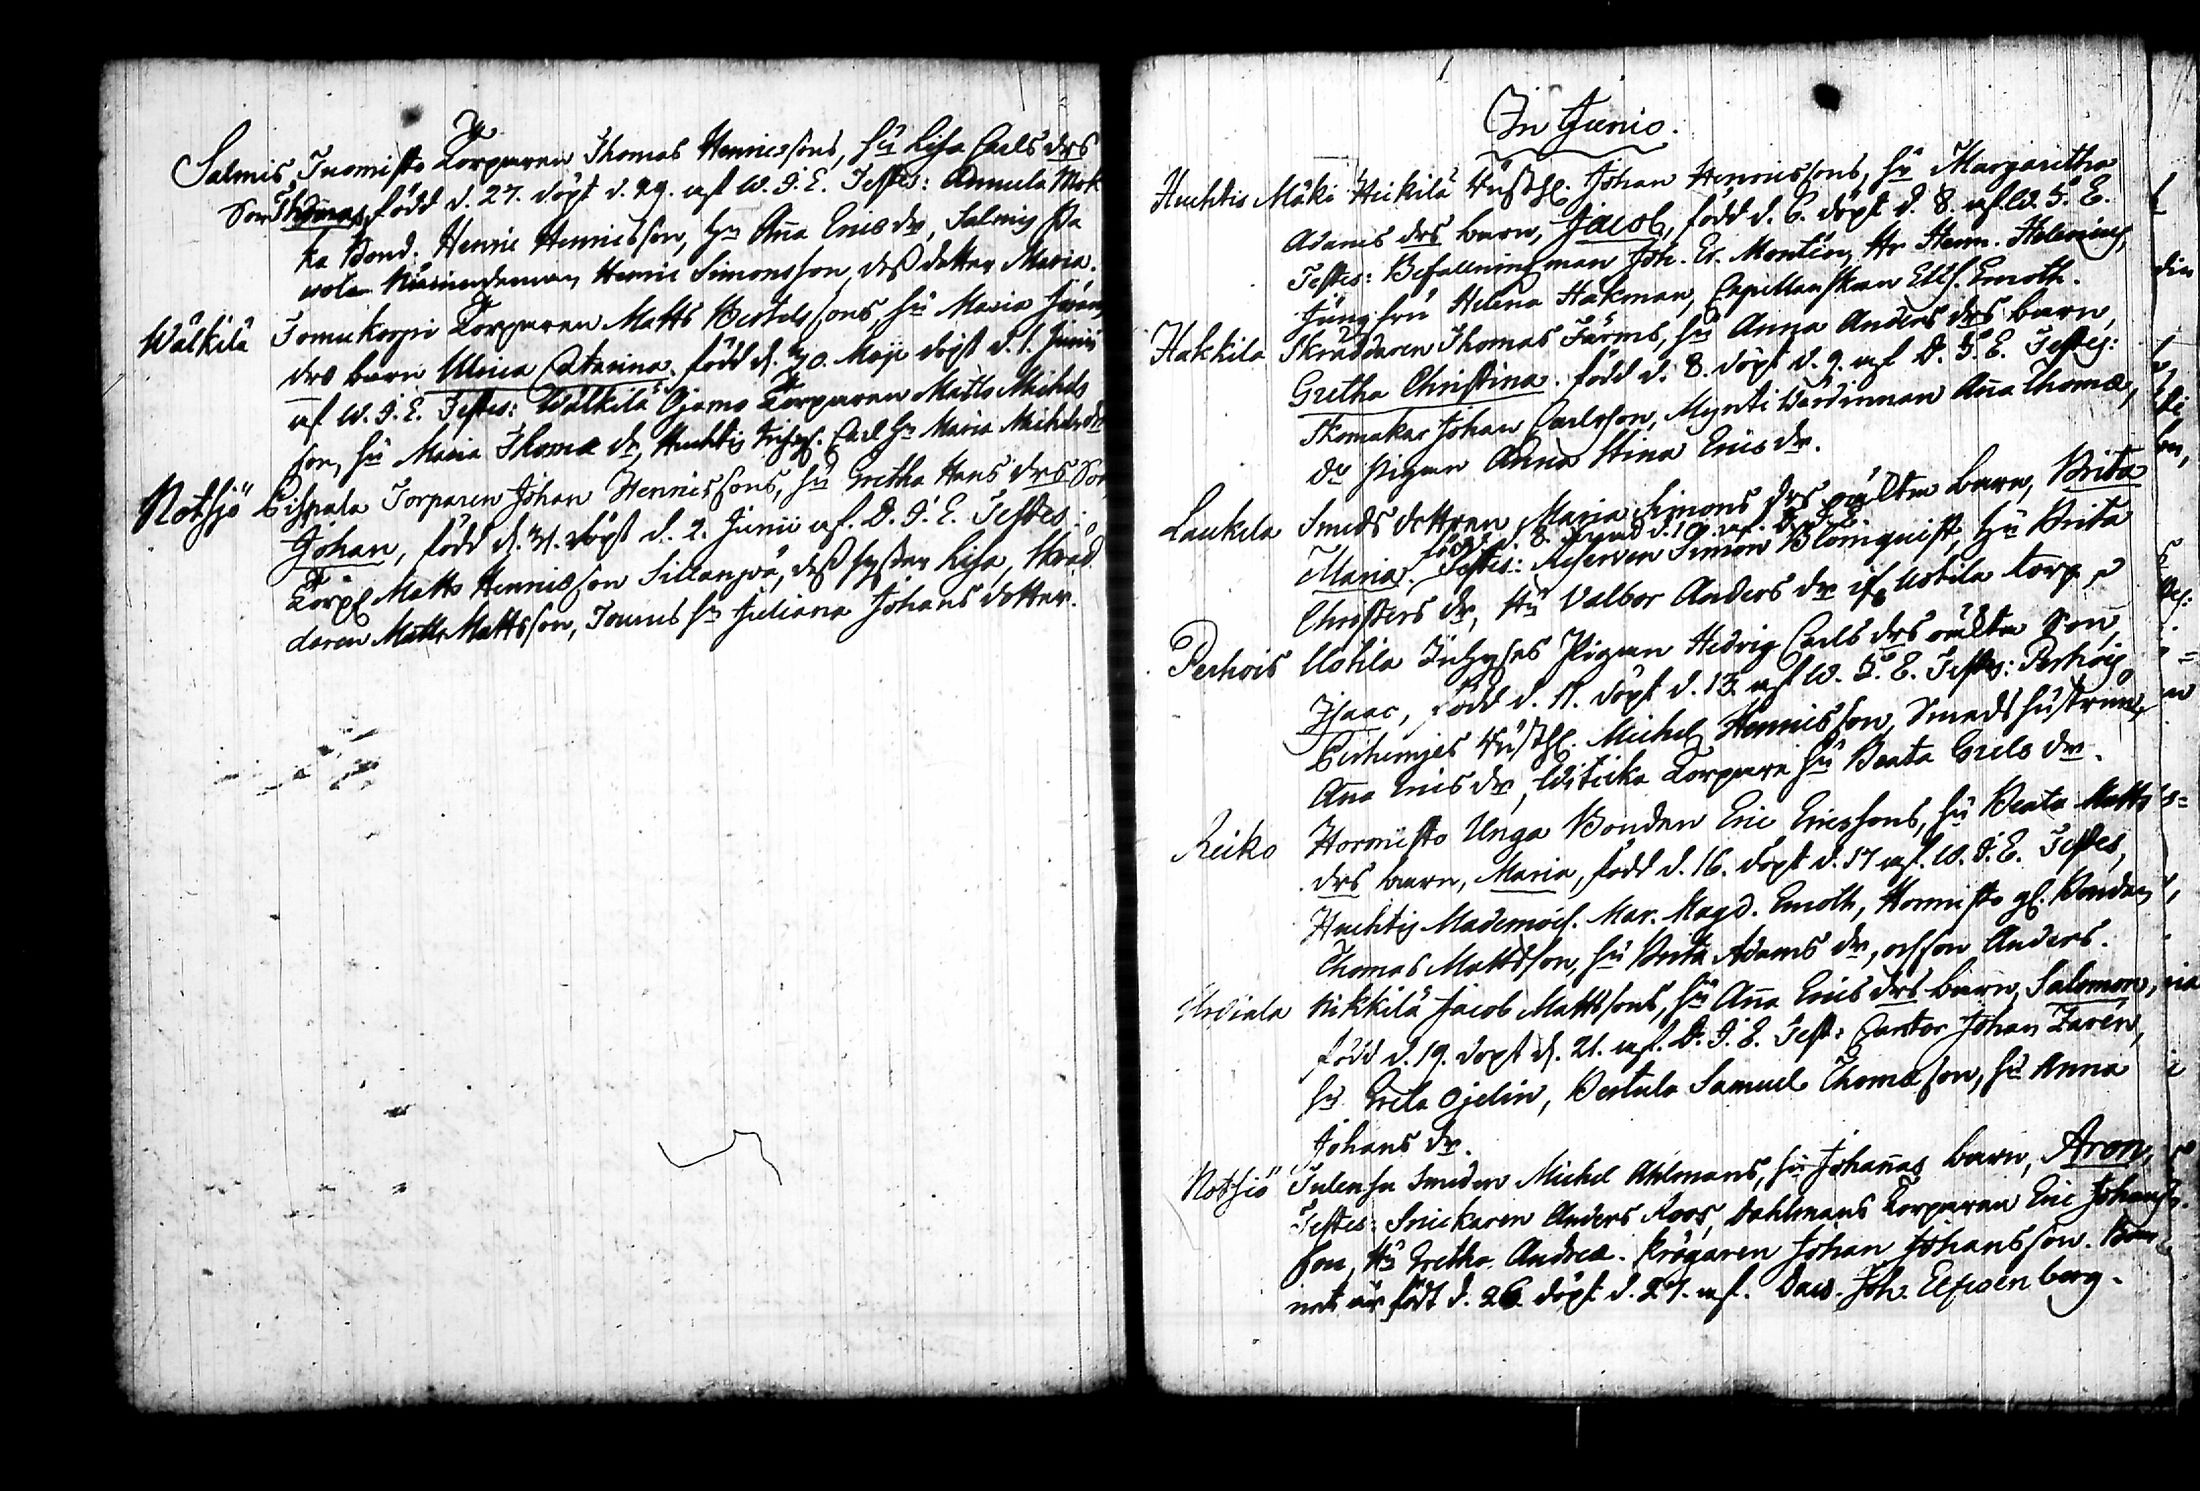 Salmis Tuomisto Torparen Thomas Henricssons, hu Lisa Carls drs
Son Thomas, född d. 27. döpt d. 29. af W. J. E. Testes: Annula Mok
ka Bond: Henric Henricsson, hu Aña Erics dr, Salmis Pa
vola Nämndeman Henric Simonsson, deß dotter Maria.
Wälkilä Torparen Matts Bertelssons, hu Maria Jörans
drs barn Ulrica Catarina. född d. 30. Maji döpt d. 1. Junii
af W. J. E. Testes: Wälkilä Ojamo Torparen Matts Michels
son, hu Maria Thomæ dr, Huchtis Carl hu Maria Michels dr
Notsjö Torparen Johan Henricssons, hu Gretha Hans drs Son
Johan, född d. 31. döpt d. 2. Junii af. D. J. E. Testes:
Torp Matts Henricsson Sillanpä, deß syster Lisa, Skräd
daren Matts Mattsson, hu Juliana Johans dotter.
In Junio.
Huchtis Mäki Heikilä Johan Henricssons, hu Margaretha
Adams drs barn, Jacob, född d. 6. döpt d. 8. af W. J. E.
Testes: Befallningsman Joh. Er. Montin, Hr Henr. Helenius,
Jungfru Helena Hakman, Capellanskan Elis. Emoth.
Hakkila Skräddaren Thomas Färms, hu Anna Anders drs barn,
Gretha Christina. född d. 8. döpt d. 9. af D. J. E. Testes:
Skomakar Johan Carlsson, Mynti Wärdinnan Aña Thomæ
dr Pigan Anna Stina Erics dr.
Laukela Smeds dottren Maria Simons drs oäkta barn, Brita
född d. 8. döpt d. 10. af. D. J. E.
Maria. Testes: Reserven Simon Blomquist, hu Brita
Christers dr, Hu Valbor Anders dr if Uotila torp
Perhois Uotila Inhyses Pigan Hedvig Carls drs oäkta Son,
Isaac, född d. 11. döpt d. 13. af W. J. E. Testes: Perhois
Michel Henricsson, Smeds hustrun
Aña Erics dr, Witicka Torpare hu Beata Griels dr.
Reiko Hormisto Unga Bonden Eric Ericssons, hu Beata Matts
drs barn, Maria, född d. 16. döpt d. 17 af. W. J. E. Testes,
Huchtis Mademois. Mar. Magd. Emoth, Hormisto gl. Bonden
Thomas Mattsson, hu Brita Adams dr, och son Anders.
Urdiala Nikkilä Jacob Mattssons, hu Aña Erics drs barn, Salomon,
född d. 19. döpt d. 21. af. D. J. E. Test: Cantor Johan Zarén,
hu Greta Ojelin, Bertula Samuel Thomæson, hu Anna
Johans dr.
Notsjö Tulensu Smeden Michel Ahlmans, hu Johañas barn, Aron,
Testes: Snickaren Anders Roos, Dahlmans Torparen Eric Johans
son, Hu Gretha Andreæ. Krögaren Johan Johansson. Bar
net är födt d. 26. döpt d. 27. af. Dav. Joh. Elfwenberg.